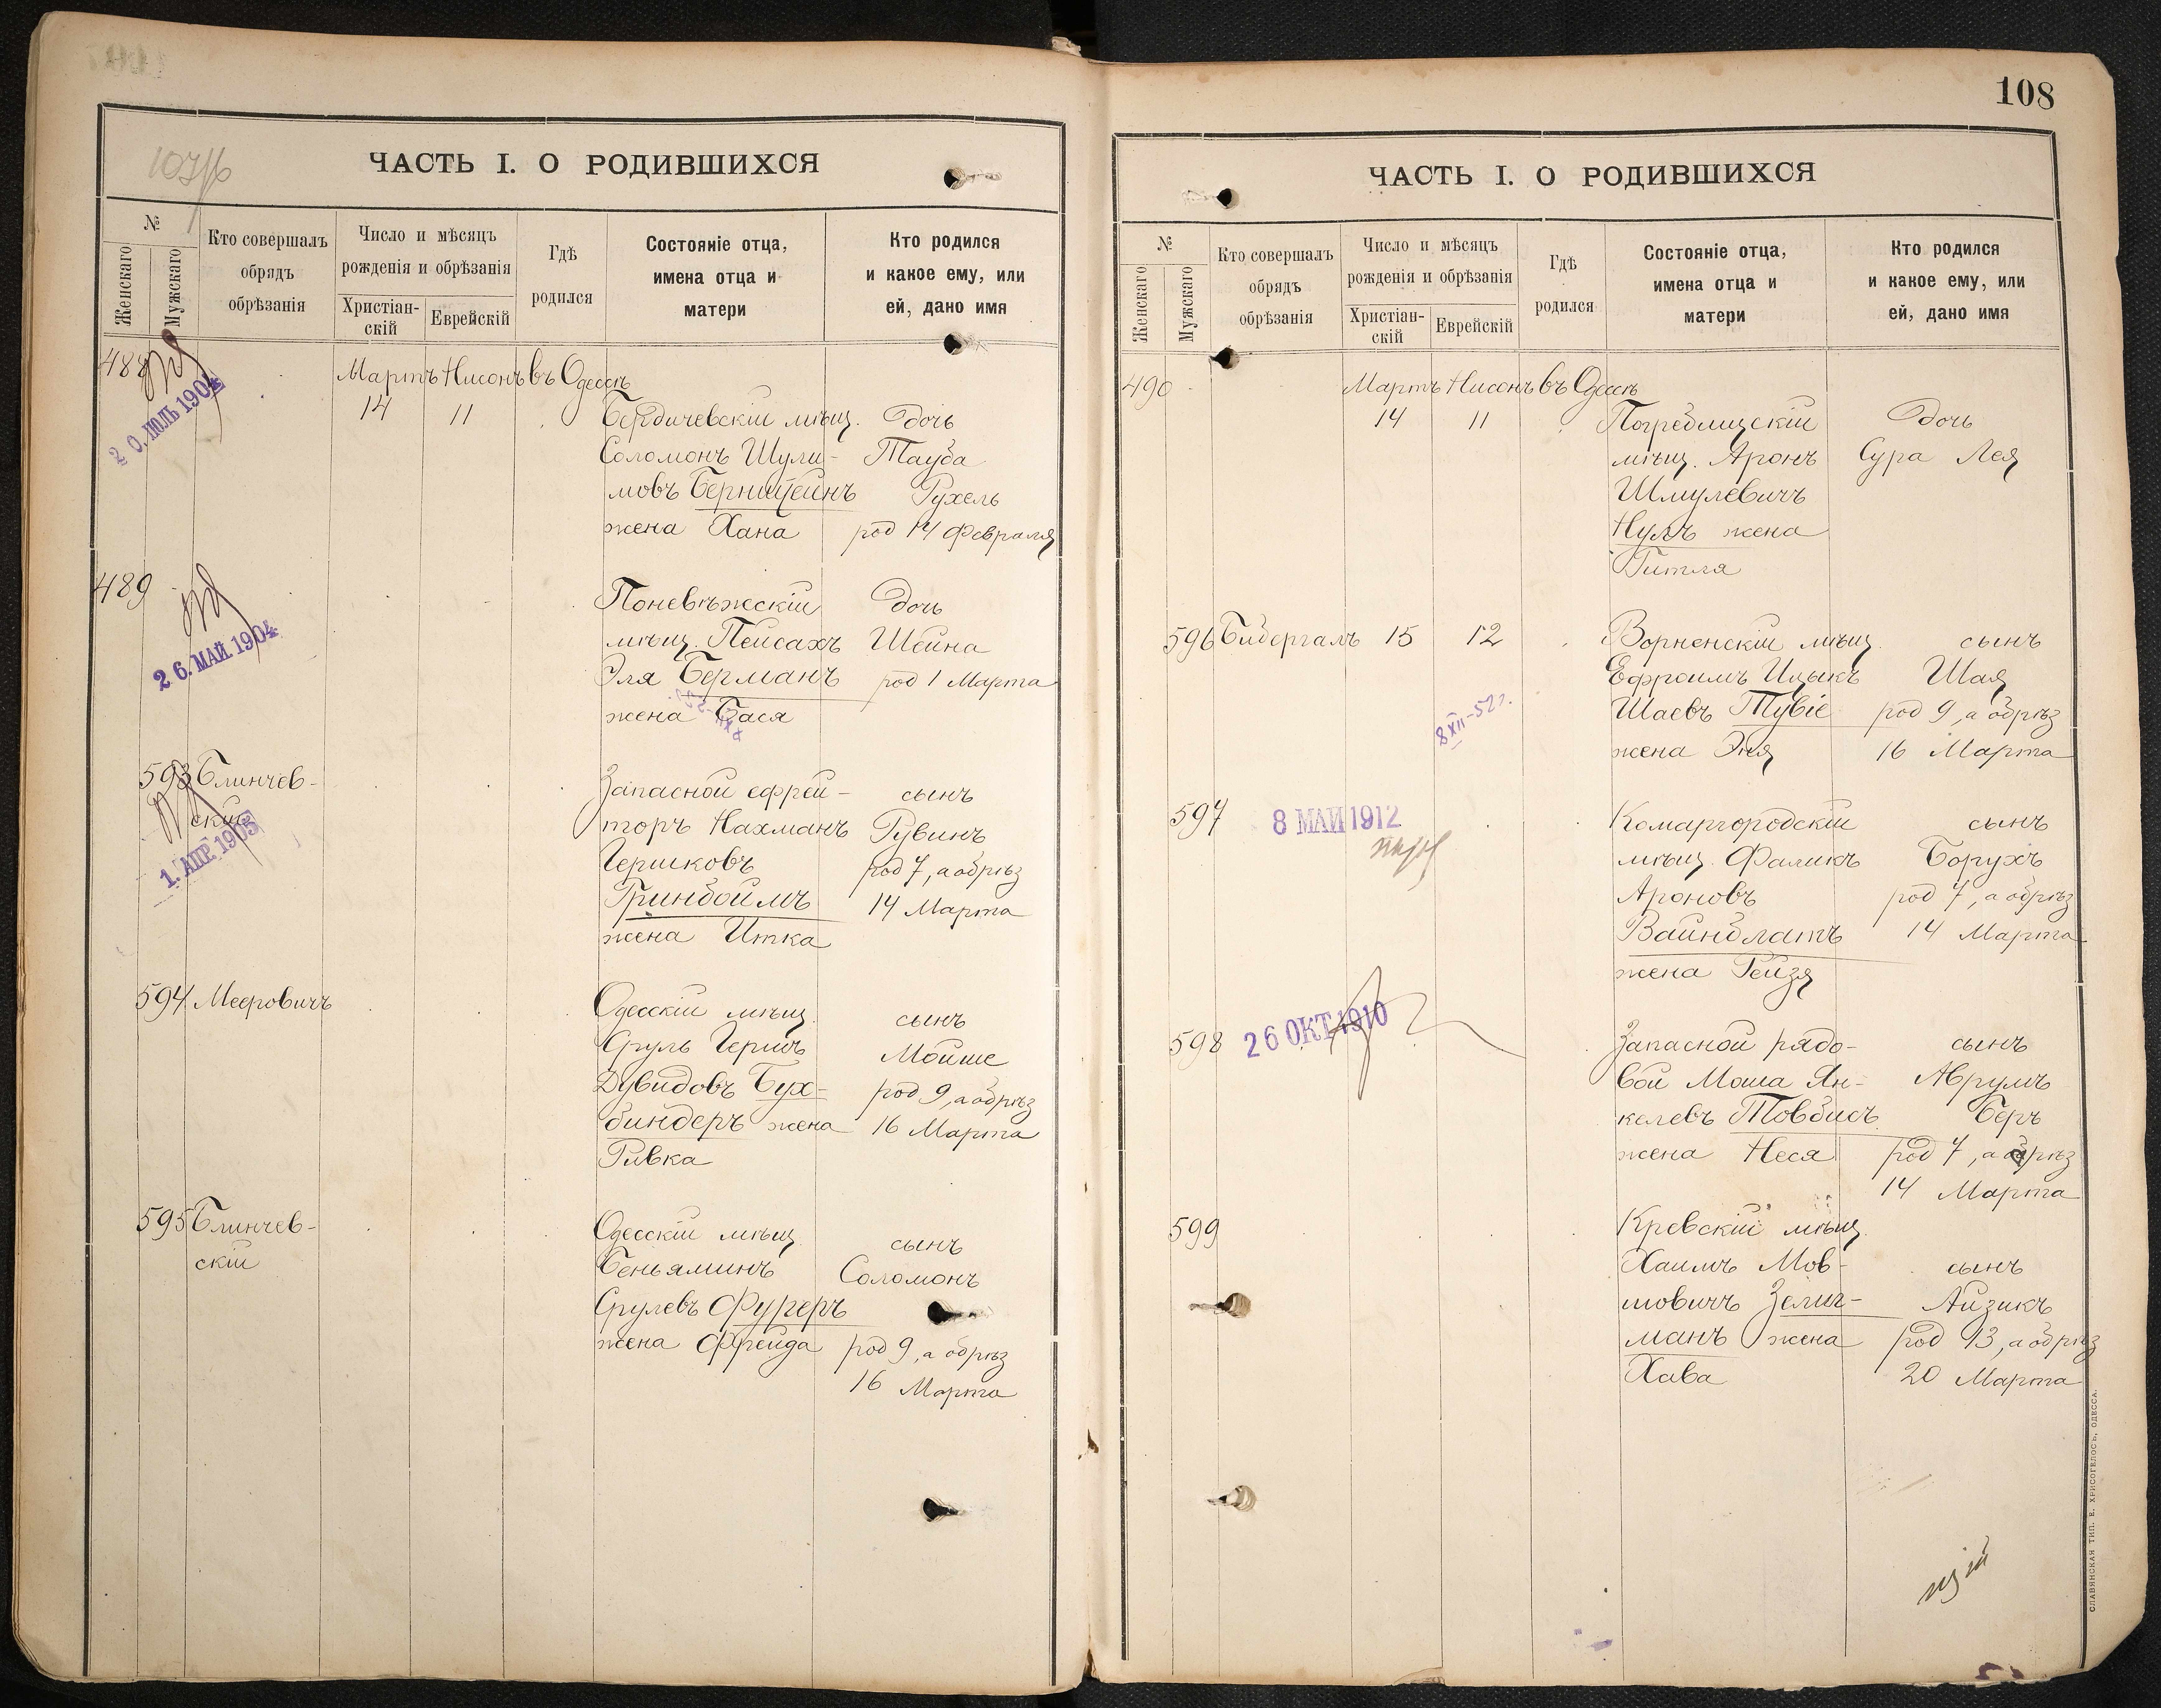 107/б
ЧАСТЬ I. О РОДИВШИХСЯ
№
Женскаго
Мужскаго
Кто совершалъ
обрядъ
обрѣзанія
Число и мѣсяцъ
рожденія и обрѣзанія
Христіан-
скій
Еврейскій
Гдѣ
родился
Состояніе отца,
имена отца и
матери
Кто родился
и какое ему, или
ей, дано имя
488
20. ІЮЛЬ 1904
Мартъ Нисонъ въ Одессѣ
14 11
Бердичевскій мѣщ. дочь
Соломонъ Шули- Тауба
мовъ Бернштейнъ Рухель
жена Хана род 14 февраля
489
26. МАЙ. 1904
Поневѣжскій дочь
мѣщ. Пейсахъ Шейна
Эля Берманъ род 1 Марта
жена Бася
593 Блинчев-
скій
1. АПР. 1905
Запасной ефрей- сынъ
торъ Нахманъ Рувинъ
Гершковъ род 7, а обрѣз
Гринбоймъ 14 Марта
жена Итка
594 Мееровичъ
Одесскій мѣщ. сынъ
Сруль Гершъ Мойше
Дувидовъ Бух- род 9, а обрѣз
биндеръ жена 16 Марта
Ривка
595 Блинчев-
скій
Одесскій мѣщ. сынъ
Беньяминъ Соломонъ
Срулевъ Фуреръ
жена Фрейда род 9, а обрѣз
16 Марта
108
ЧАСТЬ I. О РОДИВШИХСЯ
№
Женскаго
Мужскаго
Кто совершалъ
обрядъ
обрѣзанія
Число и мѣсяцъ
рожденія и обрѣзанія
Христіан-
скій
Еврейскій
Гдѣ
родился
Состояніе отца,
имена отца и
матери
Кто родился
и какое ему, или
ей, дано имя
490
Мартъ Нисонъ въ Одессѣ
14 11
Погребищскій дочь
мѣщ. Аронъ Сура Лея
Шмулевичъ
Нулъ жена
Гитля
596 Бидергалъ 15 12
Ворненскій мѣщ. сынъ
Ефроимъ Ицыкъ Шая
Шаевъ Тувіе род 9, а обрѣз
жена Эня 16 Марта
8 XII-52 г.
597
8 МАЙ 1912
Комаргородскій сынъ
мѣщ. Фаликъ Борухъ
Ароновъ род 7, а обрѣз
Вайнблатъ 14 Марта
жена Рейзя
598
26 ОКТ. 1910
Запасной рядо- сынъ
вой Моша Ян- Аврумъ
келевъ Товбисъ Беръ
жена Неся род 7, а обрѣз
14 Марта
599
Кревскій мѣщ.
Хаимъ Мов- сынъ
шовичъ Зелиг- Айзикъ
манъ жена род 13, а обрѣз
Хава 20 Марта
СЛАВЯНСКАЯ ТИП. Е. ХРИСОГЕЛОСЪ, ОДЕССА.